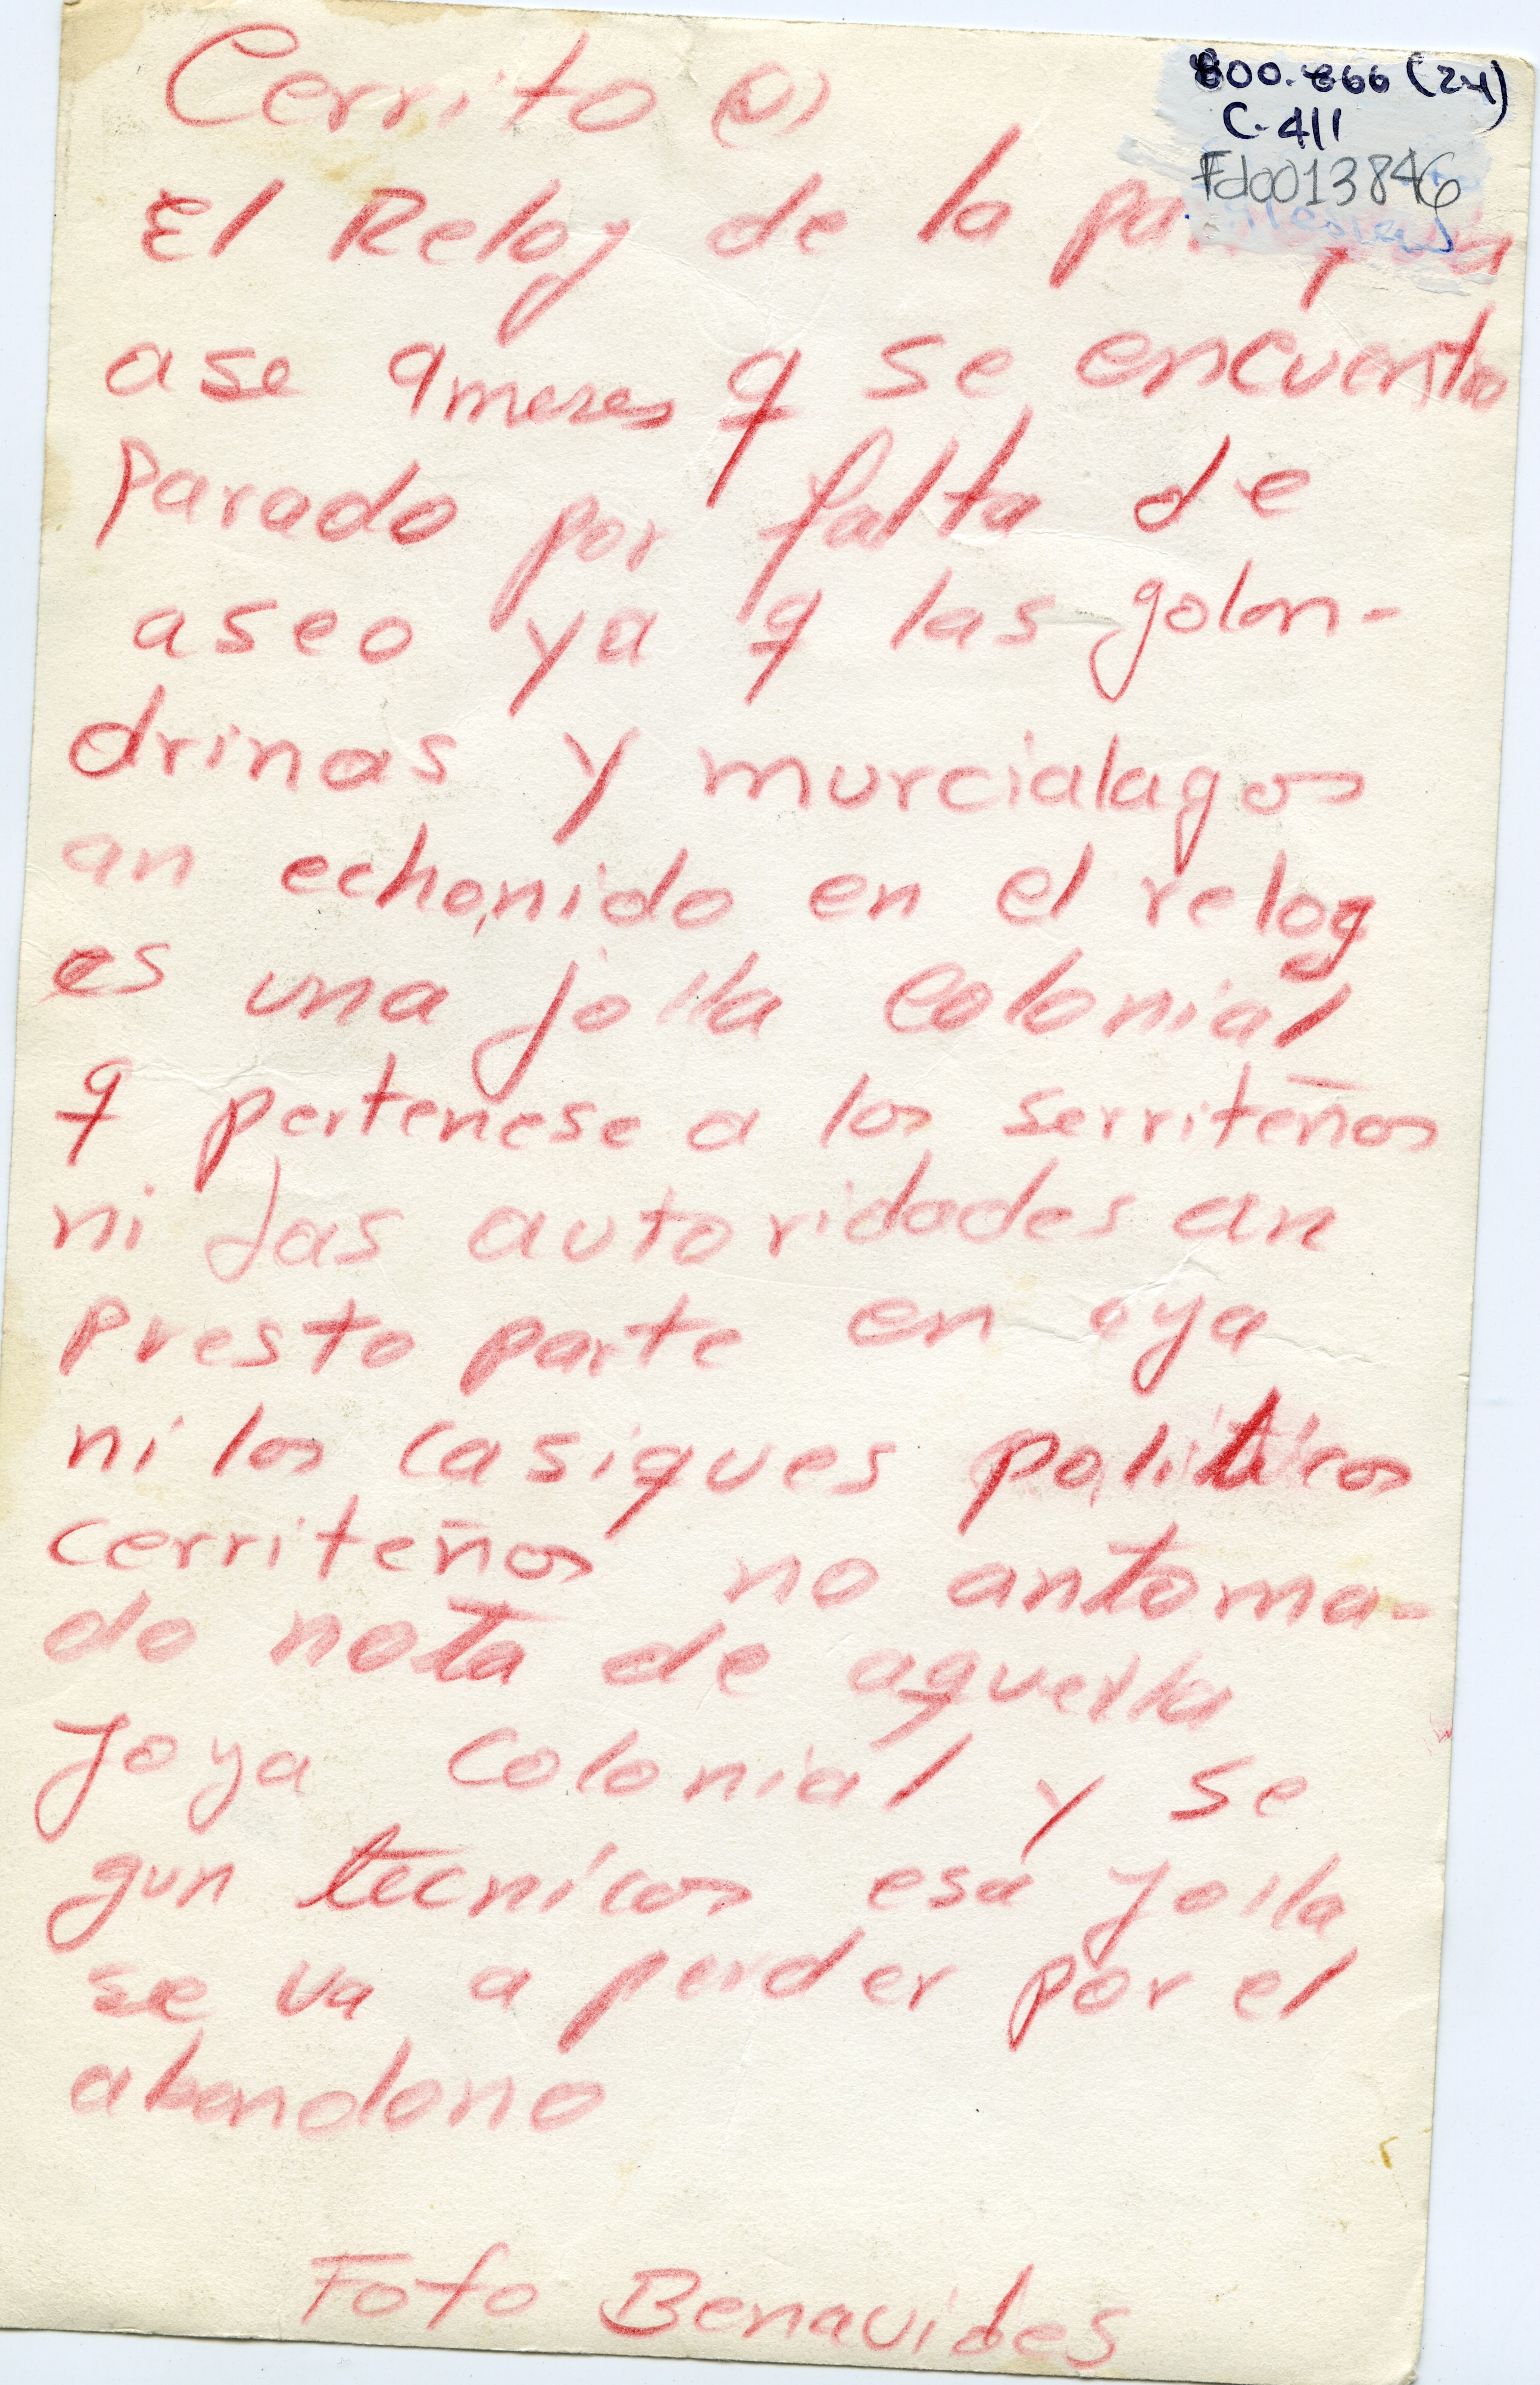 Cerrito (2)
800.866 (24)
C-411
Fd0013846
El Reloj de la
ase 9 meses q se encuentra
parado por falta de
aseo ya q las golon-
drinas y murcialagos
an echo nido en el relog
es una joila colonial
q pertenese a los serriteños
ni las autoridades an
presto parte en oya
ni los casiques politicos
cerriteños no an toma-
do nota de aquella
joya colonial y se
gun tecnicos esa joila
se va a perder por el
abandono
Foto Benavides